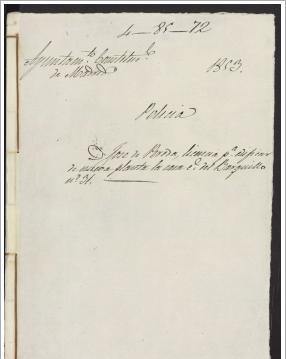 4-85-72
Ayuntam.to Constituc.l
de Madrid
1853.
Policia
D. Jose de licencia p.a
de nueva planta la casa c.e del Barquillo
nº 31.